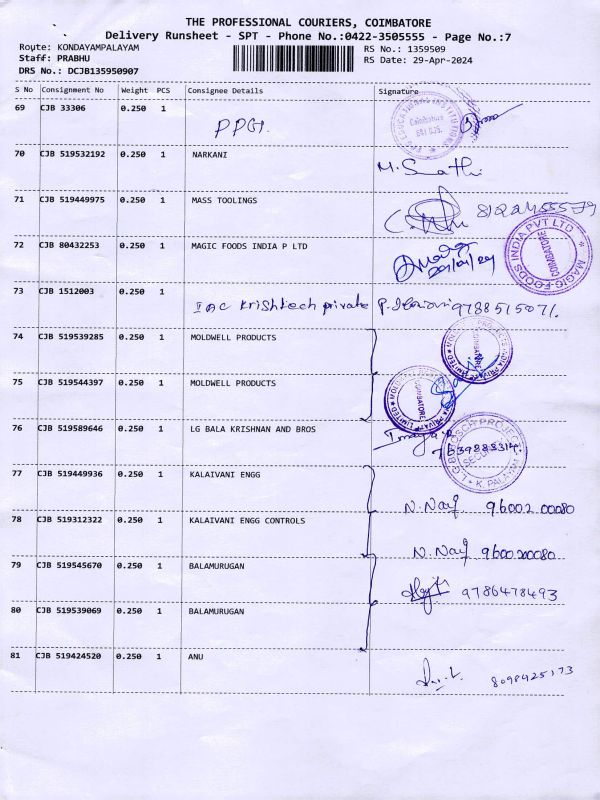 THE PROFESSIONAL COURIERS, COIMBATORE
Delivery Runsheet - SPT - Phone No.:0422-3505555 - Page No.:7
Route: KONDAYAMPALAYAM
RS No.: 1359509
Staff: PRABHU
RS Date: 29-Apr-2024
DRS No.: DCJB135950907
S No Consignment No Weight PCS Consignee Details Signature
69 CJB 33306 0.250 1 PPGI.
Coimbatore
70 CJB 519532192 0.250 1 NARKANI
71 CJB 519449975 0.250 1 MASS TOOLINGS
72 CJB 80432253 0.250 1 MAGIC FOODS INDIA P LTD
MAGIC FOODS INDIA PVT LTD COIMBATORE
73 CJB 1512003 0.250 1 Krishtech private
74 CJB 519539285 0.250 1 MOLDWELL PRODUCTS
75 CJB 519544397 0.250 1 MOLDWELL PRODUCTS
COIMBATORE
76 CJB 519589646 0.250 1 LG BALA KRISHNAN AND BROS
77 CJB 519449936 0.250 1 KALAIVANI ENGG
96002 00080
78 CJB 519312322 0.250 1 KALAIVANI ENGG CONTROLS
9600200080
79 CJB 519545670 0.250 1 BALAMURUGAN
9786478493
80 CJB 519539069 0.250 1 BALAMURUGAN
81 CJB 519424520 0.250 1 ANU
8098425173